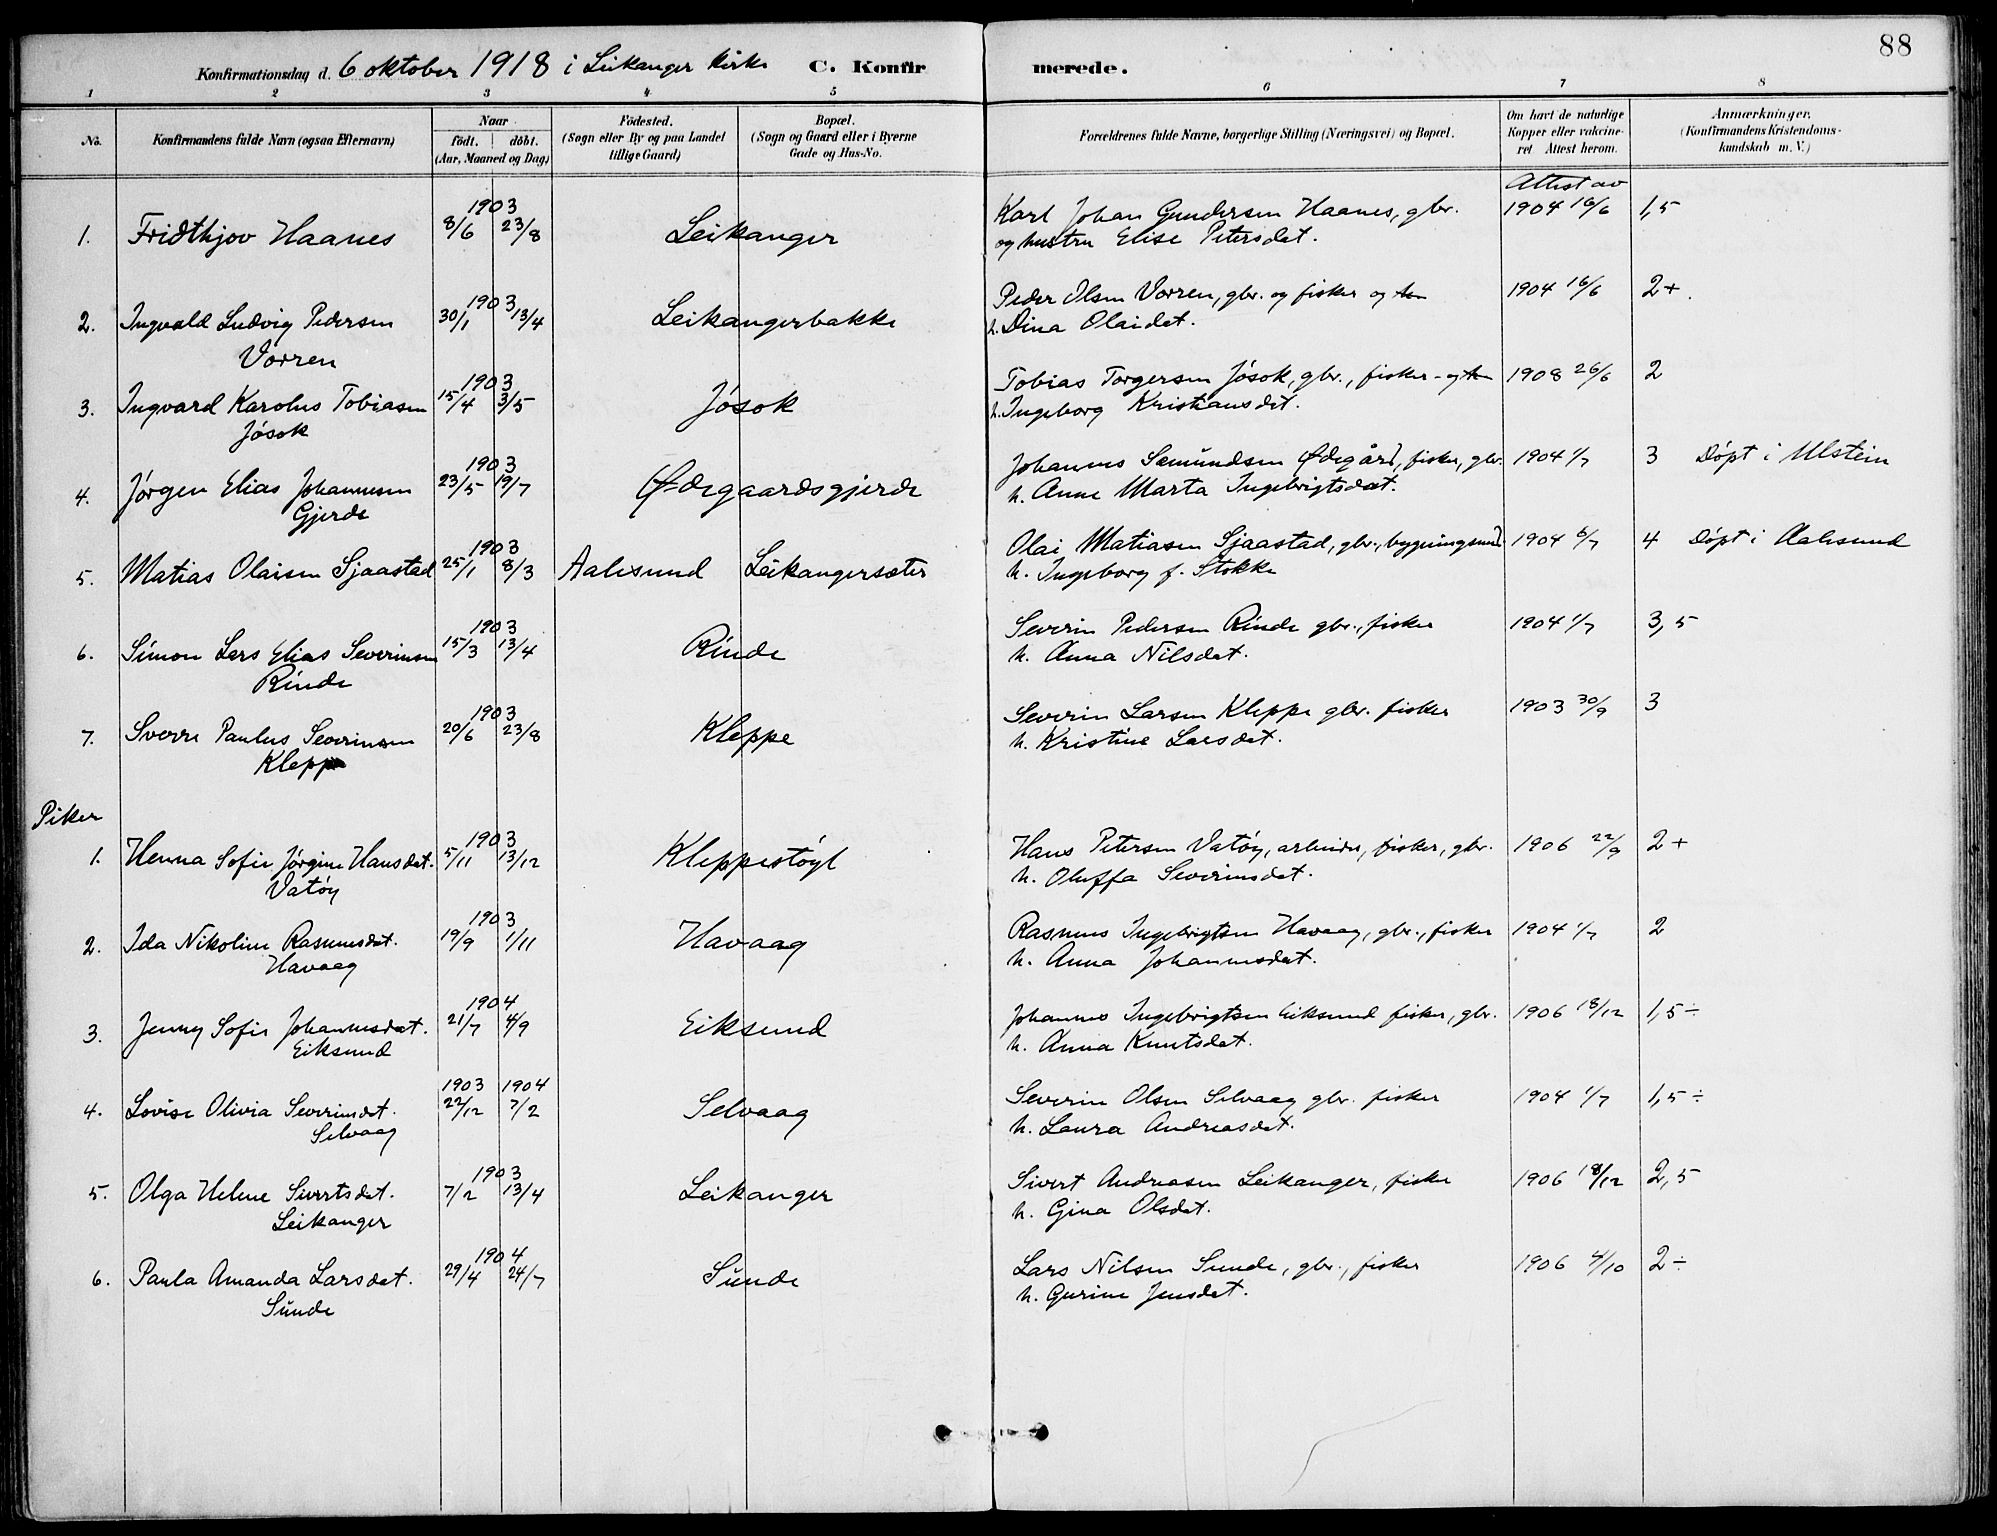 88
Konfirmationsdag d. 6 oktober 1918 i Leikanger kirke C. Konfir merede.
1 2 3 4 5 6 7 8
No. Konfirmandens fulde Navn (ogsaa Efternavn) Naar Födested. Bopæl. Forældrenes fulde Navne, borgerlige Stilling (Næringsvei) og Bopæl. Om havt de naturlige Anmærkninger.
födt. döbt. (Sogn eller By og paa Landet (Sogn og Gaard eller i Byerne Kopper eller vakcine- (Konfirmandens Kristendoms-
(Aar, Maaned og Dag) tillige Gaard) Gade og Hus-No. ret Attest herom. kundskab m. V.)
Attest av
1. Fridthjov Haanes 1903 8/6 23/8 Leikanger Karl Johan Gundersen Haanes, gbr. 1904 16/6 1,5
og hustru Elise Petersdat.
2. Ingvald Ludvig Pedersen 1903 30/1 13/4 Leikangerbakke Peder Olsen Vorren, gbr. og fisker og 1904 16/6 2+
Vorren h. Dina Olaidat.
3. Ingvard Karolus Tobiasen 1903 15/4 3/5 Jósok Tobias Torgersen Jósok, gbr., fisker - og 1908 26/6 2
Jósok h. Ingeborg Kristiansdat.
4. Jórgen Elias Johannesen 1903 23/5 19/7 Ødegaardsgjerde Johannes Semundsen Ødegård, fisker, gbr. 1904 1/7 3 Døpt i Ulstein
Gjerde h. Anne Marta Ingebrigtsdat.
5. Matias Olaisen Sjaastad 1903 25/1 8/3 Aalesund Leikangersæter Olai Matiasen Sjaastad, gbr., bygningsmd. 1904 6/7 4 Døpt i Aalesund
h. Ingeborg f. Stokke
6. Simon Lars Elias Severinsen 1903 15/3 13/4 Rinde Severin Pedersen Rinde gbr., fisker 1904 1/7 3,5
Rinde h. Anna Nilsdat.
7. Sverre Paulus Severinsen 1903 20/6 23/8 Kleppe Severin Larsen Kleppe gbr. fisker 1903 30/9 3
Kleppe h. Kristine Larsdat.
Piker
1. Henna Sofie Jórgine Hansdat. 1903 5/11 13/12 Kleppestóyl Hans Petersen Vatóy, arbeider, fisker, gbr. 1906 22/9 2+
Vatóy h. Oluffa Severinsdat.
2. Ida Nikoline Rasmusdat. 1903 19/9 1/11 Havaag Rasmus Ingebrigtsen Havaag, gbr., fisker 1904 1/7 2
Havaag h. Anna Johannesdat.
3. Jenny Sofie Johannesdat. 1904 21/7 4/9 Eiksund Johannes Ingebrigtsen Eiksund fisker, gbr. 1906 18/12 1,5÷
Eiksund h. Anna Knutsdat.
4. Lovise Olivia Severinsdat. 1903 22/12 1904 7/2 Selvaag Severin Olsen Selvaag gbr. fisker 1904 1/7 1,5÷
Selvaag h. Laura Andreasdat.
5. Olga Helene Sivertsdat. 1903 7/2 13/4 Leikanger Sivert Andreasen Leikanger, fisker 1906 18/12 2,5
Leikanger h. Gina Olsdat.
6. Paula Amanda Larsdat. 1904 29/4 24/7 Sunde Lars Nilsen Sunde, gbr., fisker 1906 4/10 2÷
Sunde h. Gurine Jensdat.